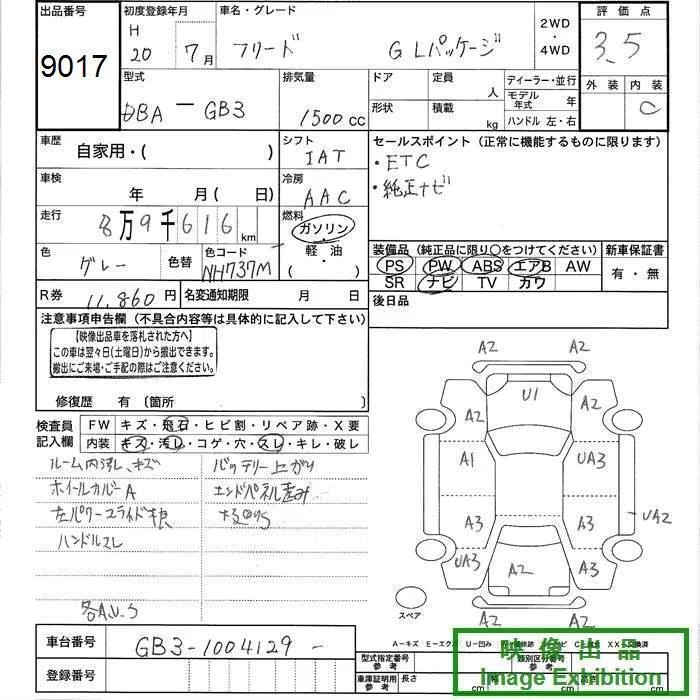 出品番号 初度登録年月 車名・グレード 2WD・4WD 評価点
9017 H 20 7月 フリード G Lパッケージ 3.5
型式 排気量 ドア 定員 人 ディーラー・並行 外装 内装
DBA-GB3 1500cc 形状 積載 kg モデル年式 年 C
ハンドル 左・右
車歴 自家用・( ) シフト IAT セールスポイント(正常に機能するものに限ります)
・ETC
・純正ナビ
車検 年 月(日) 冷房 AAC
走行 8万9千616km 燃料 ガソリン
軽・油
( )
色 グレー 色替 色コード NH737M
装備品(純正品に限り○をつけてください) 新車保証書
PS PW ABS エアB AW 有・無
SR ナビ TV カワ
R券 11,860円 名変通知期限 月 日 後日品
注意事項申告欄(不具合内容等は具体的に記入して下さい)
【映像出品車を落札された方へ】
この車は翌々日(土曜日)から搬出できます。
搬出にご来場・ご手配の際はご注意ください。
修復歴 有〔箇所 〕
検査員記入欄 FW キズ・飛石・ヒビ割・リペア跡・X要
内装 キズ・汚レ・コゲ・穴・スレ・キレ・破レ
ルーム内汚レ、キズ バッテリー上がり
ホイールカバーA エンドパネル歪み
左パワースライド不良
ハンドルスレ
各A.U.S
A2 A2
U1
A2 A2
A1 UA3
A3 A3 UA2
UA3 A2 A3
スペア
A2 A2
A-キズ E-エクボ U-凹み
車台番号 GB3-1004129
登録番号
型式指定番号 参考 類別区分番号 参考
車庫証明用 参考 長さ cm 幅 cm 高さ cm
映像出品
Image Exhibition